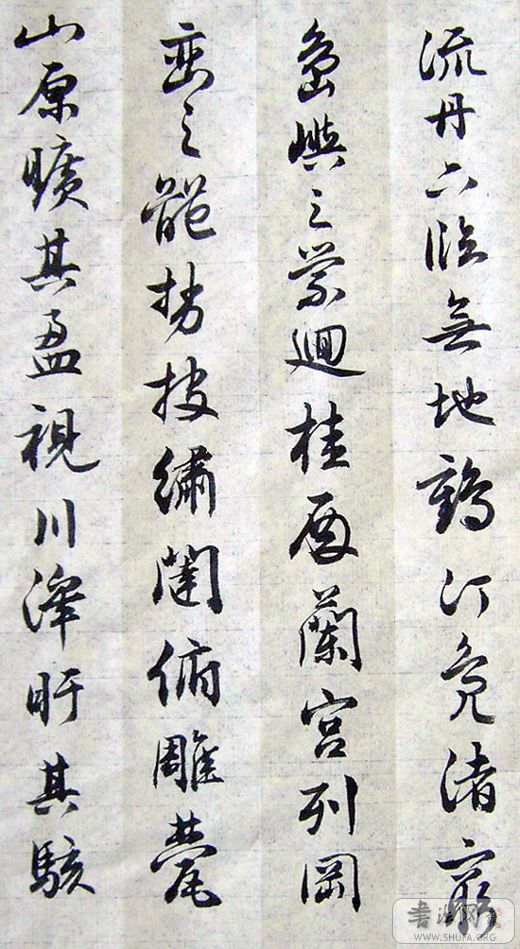 流丹下臨無地鶴汀鳧渚窮
島嶼之縈迴桂殿蘭宮列岡
巒之體勢披繡闥俯雕甍
山原曠其盈視川澤盱其駭
書法网
WWW.SHUFA.ORG